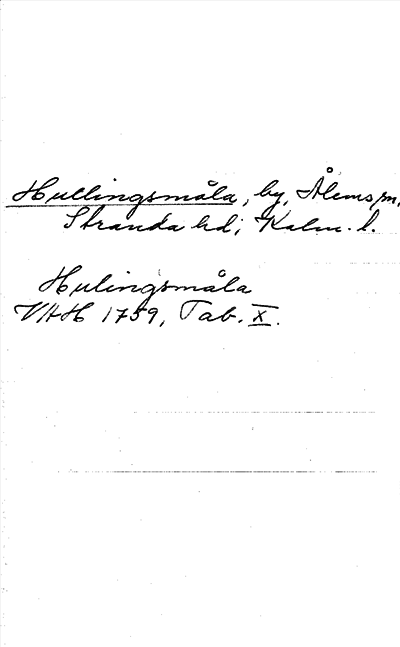 Hullingsmåla, by, Ålems sn,
Stranda hd; Kalm. l.
Hulingsmåla
VHH 1759, Tab. X.